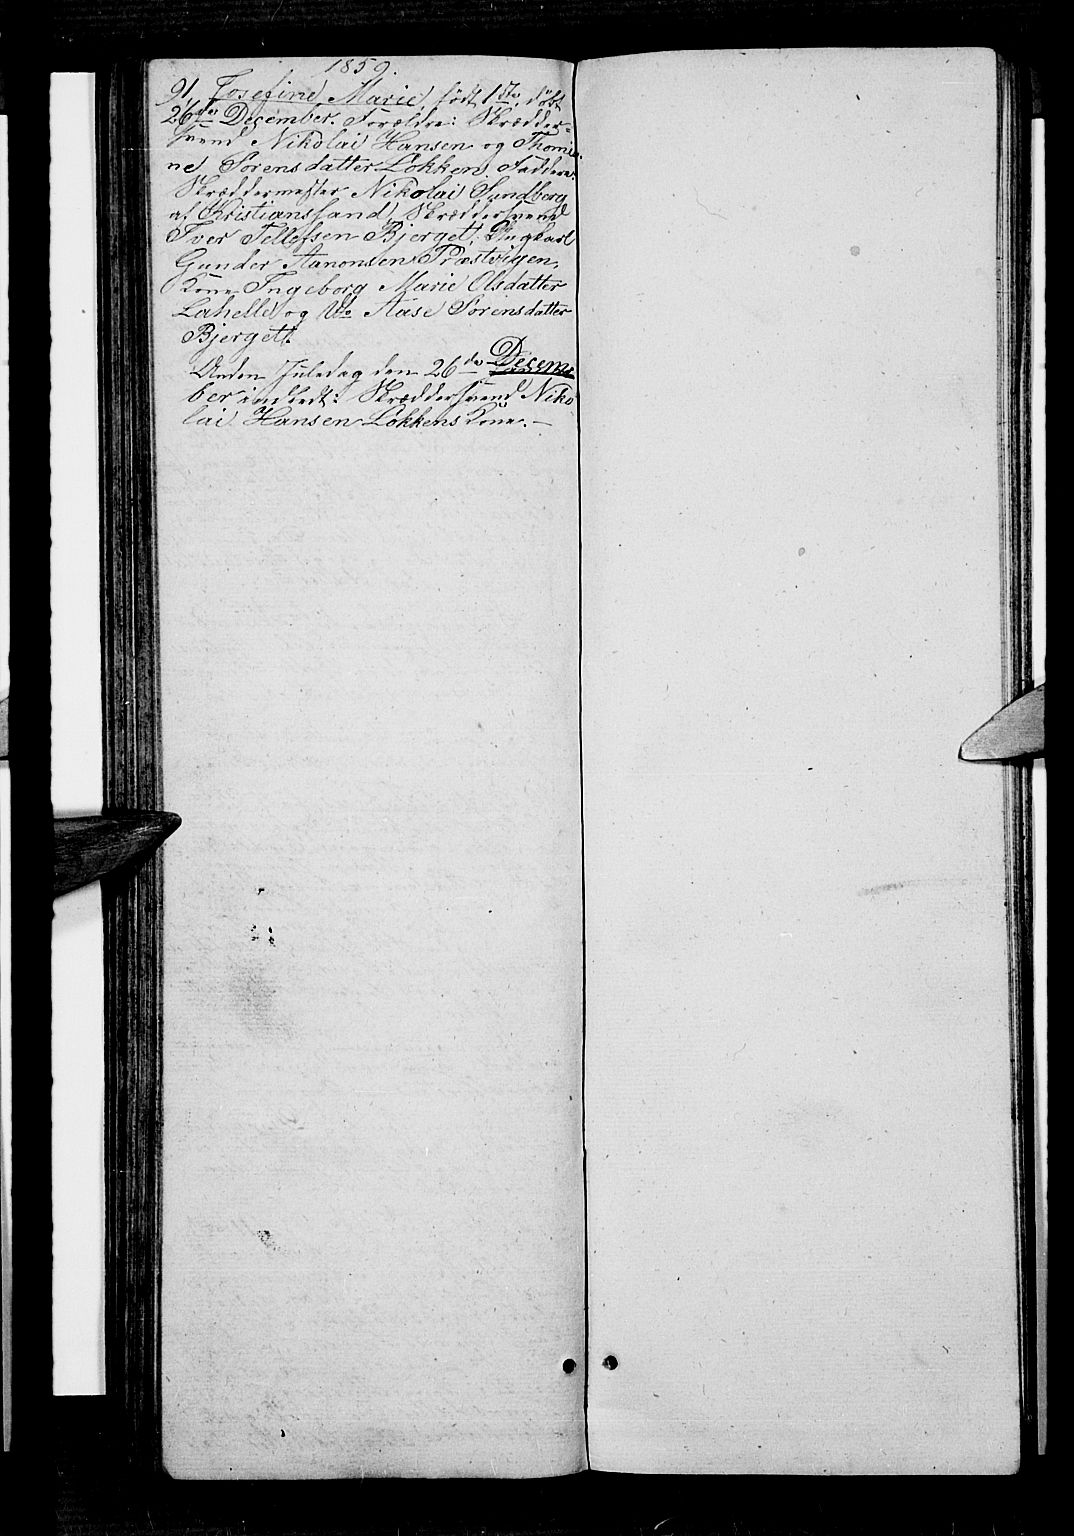 1859.
91, Josefine Marie, født 1ste, døbt
26de December. Forældre: Skrædder-
svend Nikolai Hansen og Thomi-
ne Sørensdatter Løkken. Faddere:
Skræddermester Nikolai Sundberg
af Kristianssand, Skræddersvend
Iver Tellefsen Bjerget, Ungkarl
Gunder Aanonsen Præstvigen,
Kone Ingeborg Marie Olsdatter
Lahelle og Do Aase Sørensdatter
Bjerget.
Anden Juledag den 26de Decem-
ber indledt: Skræddersvend Niko-
lai Hansen Løkkens Kone. —